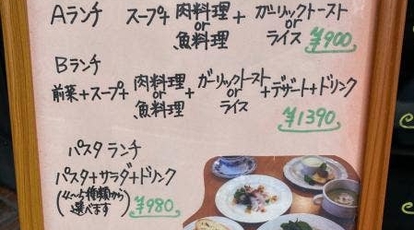 Aランチ スープ+肉料理or魚料理+ガーリックトーストorライス ¥900
Bランチ
前菜+スープ+肉料理or魚料理+ガーリックトーストorライス+デザート+ドリンク
¥1390
パスタランチ
パスタ+サラダ+ドリンク
(4〜5種類から選べます) ¥980